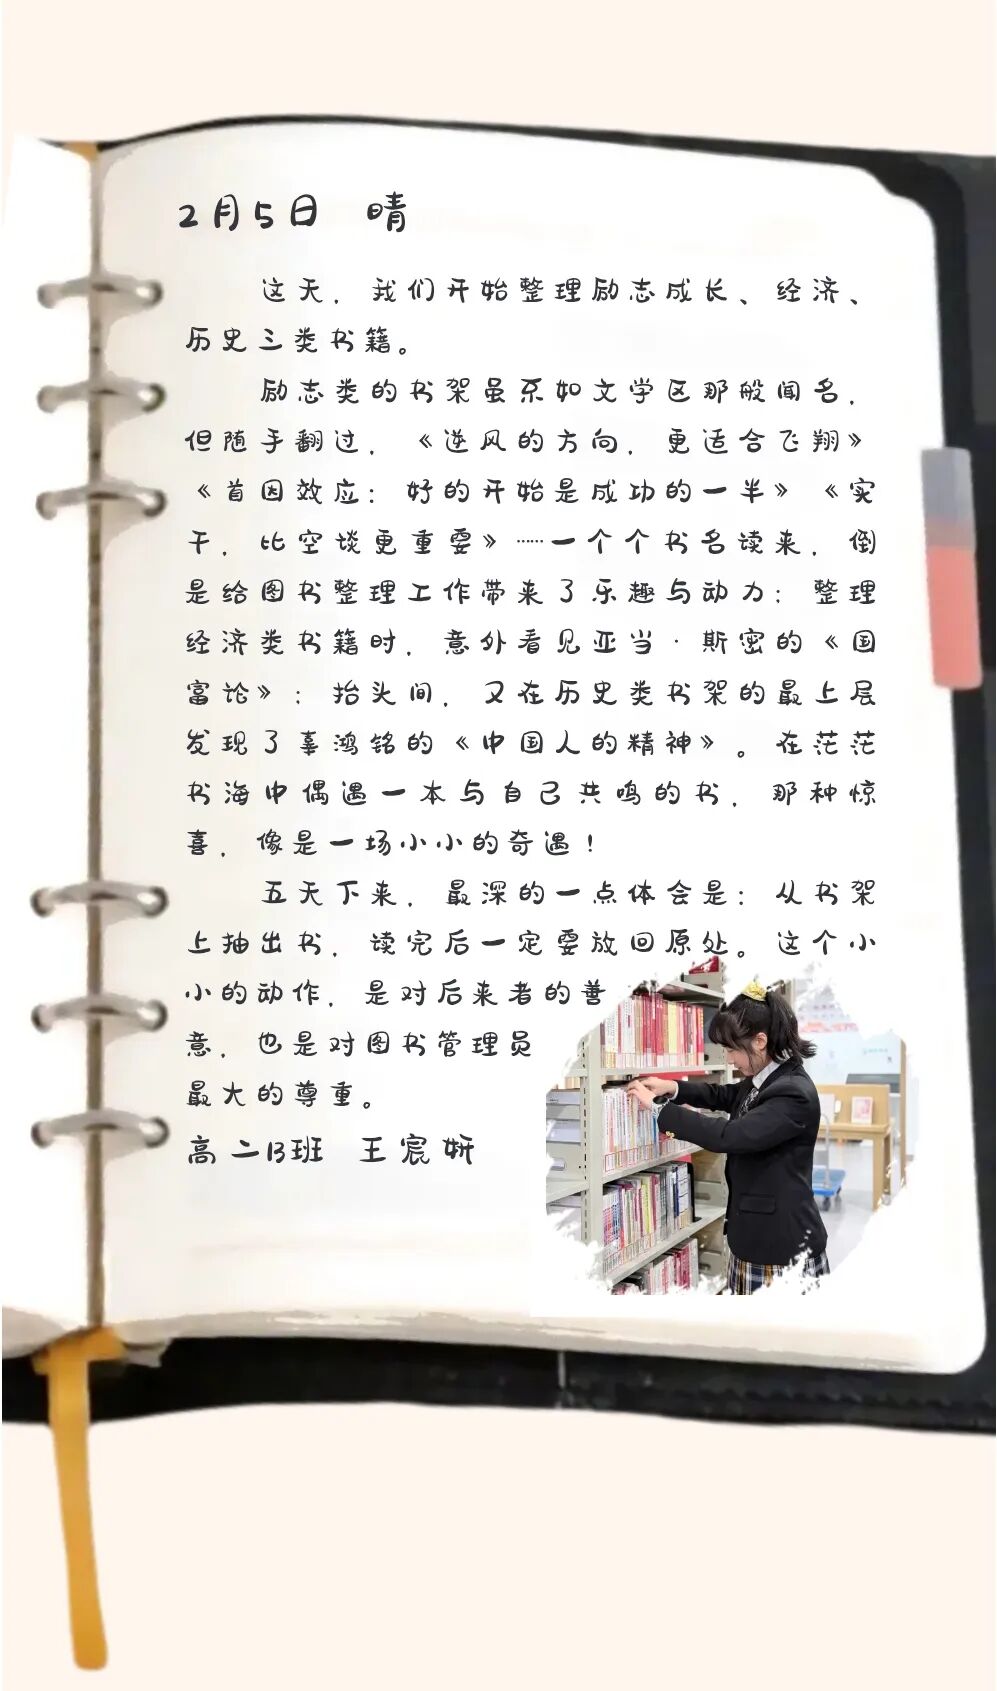 2月5日 晴
这天，我们开始整理励志成长、经济、
历史三类书籍。
励志类的书架虽不如文学区那般闻名，
但随手翻过，《逆风的方向，更适合飞翔》
《首因效应：好的开始是成功的一半》《实
干，比空谈更重要》……一个个书名读来，倒
是给图书整理工作带来了乐趣与动力；整理
经济类书籍时，意外看见亚当·斯密的《国
富论》；抬头间，又在历史类书架的最上层
发现了辜鸿铭的《中国人的精神》。在茫茫
书海中偶遇一本与自己共鸣的书，那种惊
喜，像是一场小小的奇遇！
五天下来，最深的一点体会是：从书架
上抽出书，读完后一定要放回原处。这个小
小的动作，是对后来者的善
意，也是对图书管理员
最大的尊重。
高二B班 王宸妍